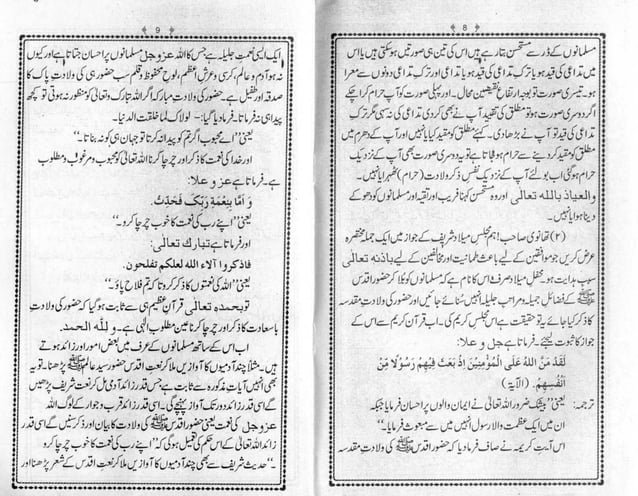 8
مسلمانوں کے ڈر سے مستحسن بتا رہے ہیں اس کی تین ہی صورتیں ہو سکتی ہیں یا اس
میں تداعی کی قید ہو یا ترک تداعی کی قید ہو یا تداعی اور ترک تداعی دونوں سے معرا
ہو۔ تیسری صورت تو بوجہ ارتفاع نقیضین محال۔ اور پہلی صورت کو آپ حرام کر چکے
اگر دوسری صورت ہو تو مطلق کی تقیید آپ نے بھی کر دی تداعی کی نہ سہی مگر ترک
تداعی کی قید تو آپ نے بڑھا دی۔ کہئے مطلق کو مقید کیا یا نہیں اور آپ کے دھرم میں
مطلق کو مقید کر دینے سے حرام ہو جاتا ہے تو یہ دوسری صورت بھی آپ کے نزدیک
حرام ہوگی اب بولئے آپ کے نزدیک نفس ذکر ولادت (حرام) ٹھہرا یا نہیں۔
والعیاذ باللہ تعالی اور وہ مستحسن کہنا فریب اور تقیہ اور مسلمانوں کو دھوکے
دینا ہوا یا نہیں۔
(۲) تھانوی صاحب! ہم مجلس میلاد شریف کے جواز میں ایک جملہ مختصرہ
عرض کریں جو موافقین کے لئے باعث طمانیت اور مخالفین کے لیے باذنہ تعالی
سبب ہدایت ہو۔ محفل میلاد صرف اس کا نام ہے کہ مسلمانوں کو بلا کر حضور اقدس
ﷺ کے فضائل جمیلہ و مراحب جلیلہ انہیں سنائے جائیں اور حضور کی ولادت مقدسہ
کا ذکر کیا جائے یہ تو حقیقت ہے اس مجلس کریم کی۔ اب قرآن کریم سے اس کے
جواز کا ثبوت لیجئے۔ فرماتا ہے جل و علا:
لَقَدْ مَنَّ اللهُ عَلَى الْمُؤْمِنِيْنَ اِذْ بَعَثَ فِيْهِمْ رَسُوْلًا مِّنْ
اَنْفُسِهِمْ. (الآية)
ترجمہ: یعنی "بیشک ضرور اللہ تعالی نے ایمان والوں پر احسان فرمایا جبکہ
ان میں ایک عظمت والا رسول انہیں میں سے مبعوث فرمایا۔"
اس آیت کریمہ نے صاف فرما دیا کہ حضور اقدس ﷺ کی ولادت مقدسہ
9
ایک ایسی نعمت جلیلہ ہے جس کا اللہ عزوجل مسلمانوں پر احسان جتاتا ہے اور کیوں
نہ ہو آدم و عالم، کرسی و عرش اعظم، لوح محفوظ و قلم سب حضور ہی کی ولادت پاک کا
صدقہ اور طفیل ہے۔ حضور کی ولادت مبارکہ اگر اللہ تبارک وتعالی کو منظور نہ ہوتی تو کچھ
پیدا ہی نہ فرماتا۔ فرما دیا گیا:۔ لولاک لما خلقت الدنیا۔
یعنی "اے محبوب اگر تم کو پیدا نہ کرتا تو جہان ہی کو نہ بناتا۔"
اور خدا کی نعمت کا ذکر اور چرچا کرنا اللہ تعالی کو محبوب و مرغوب و مطلوب
ہے۔ فرماتا ہے عز و علا:
وَ اَمَّا بِنِعْمَةِ رَبِّكَ فَحَدِّثْ.
یعنی "اپنے رب کی نعمت کا خوب چرچا کرو۔"
اور فرماتا ہے تبارک تعالی:
فاذكروا آلاء الله لعلكم تفلحون.
یعنی "اللہ کی نعمتوں کا ذکر کرو تاکہ تم فلاح پاؤ۔"
تو بحمدہ تعالی قرآن عظیم ہی سے ثابت ہو گیا کہ حضور کی ولادت
باسعادت کا ذکر اور چرچا کرنا عین مطلوب الہی ہے۔ وللہ الحمد.
اب اس کے ساتھ مسلمانوں کے عرف میں بعض امور اور زائد ہوتے
ہیں۔ مثلا چند آدمیوں کا آوازیں ملا کر نعت اقدس حضور سید عالم ﷺ پڑھنا۔ تو یہ
بھی انہیں آیات مذکورہ سے ثابت ہے جس قدر زائد آدمی مل کر نعت شریف پڑھیں
گے اسی قدر زائد دور تک آواز پہنچے گی۔ اسی قدر زائد قرب و جوار کے لوگ اللہ
عزوجل کی نعمت یعنی حضور اقدس ﷺ کی ولادت کا بیان اور ذکر سنیں گے اسی قدر
زائد اللہ تعالی کے اس حکم کی تعمیل ہوگی کہ "اپنے رب کی نعمت کا خوب چرچا کرو
۔" حدیث شریف سے بھی چند آدمیوں کا آوازیں ملا کر نعت اقدس کے شعر پڑھنا اور